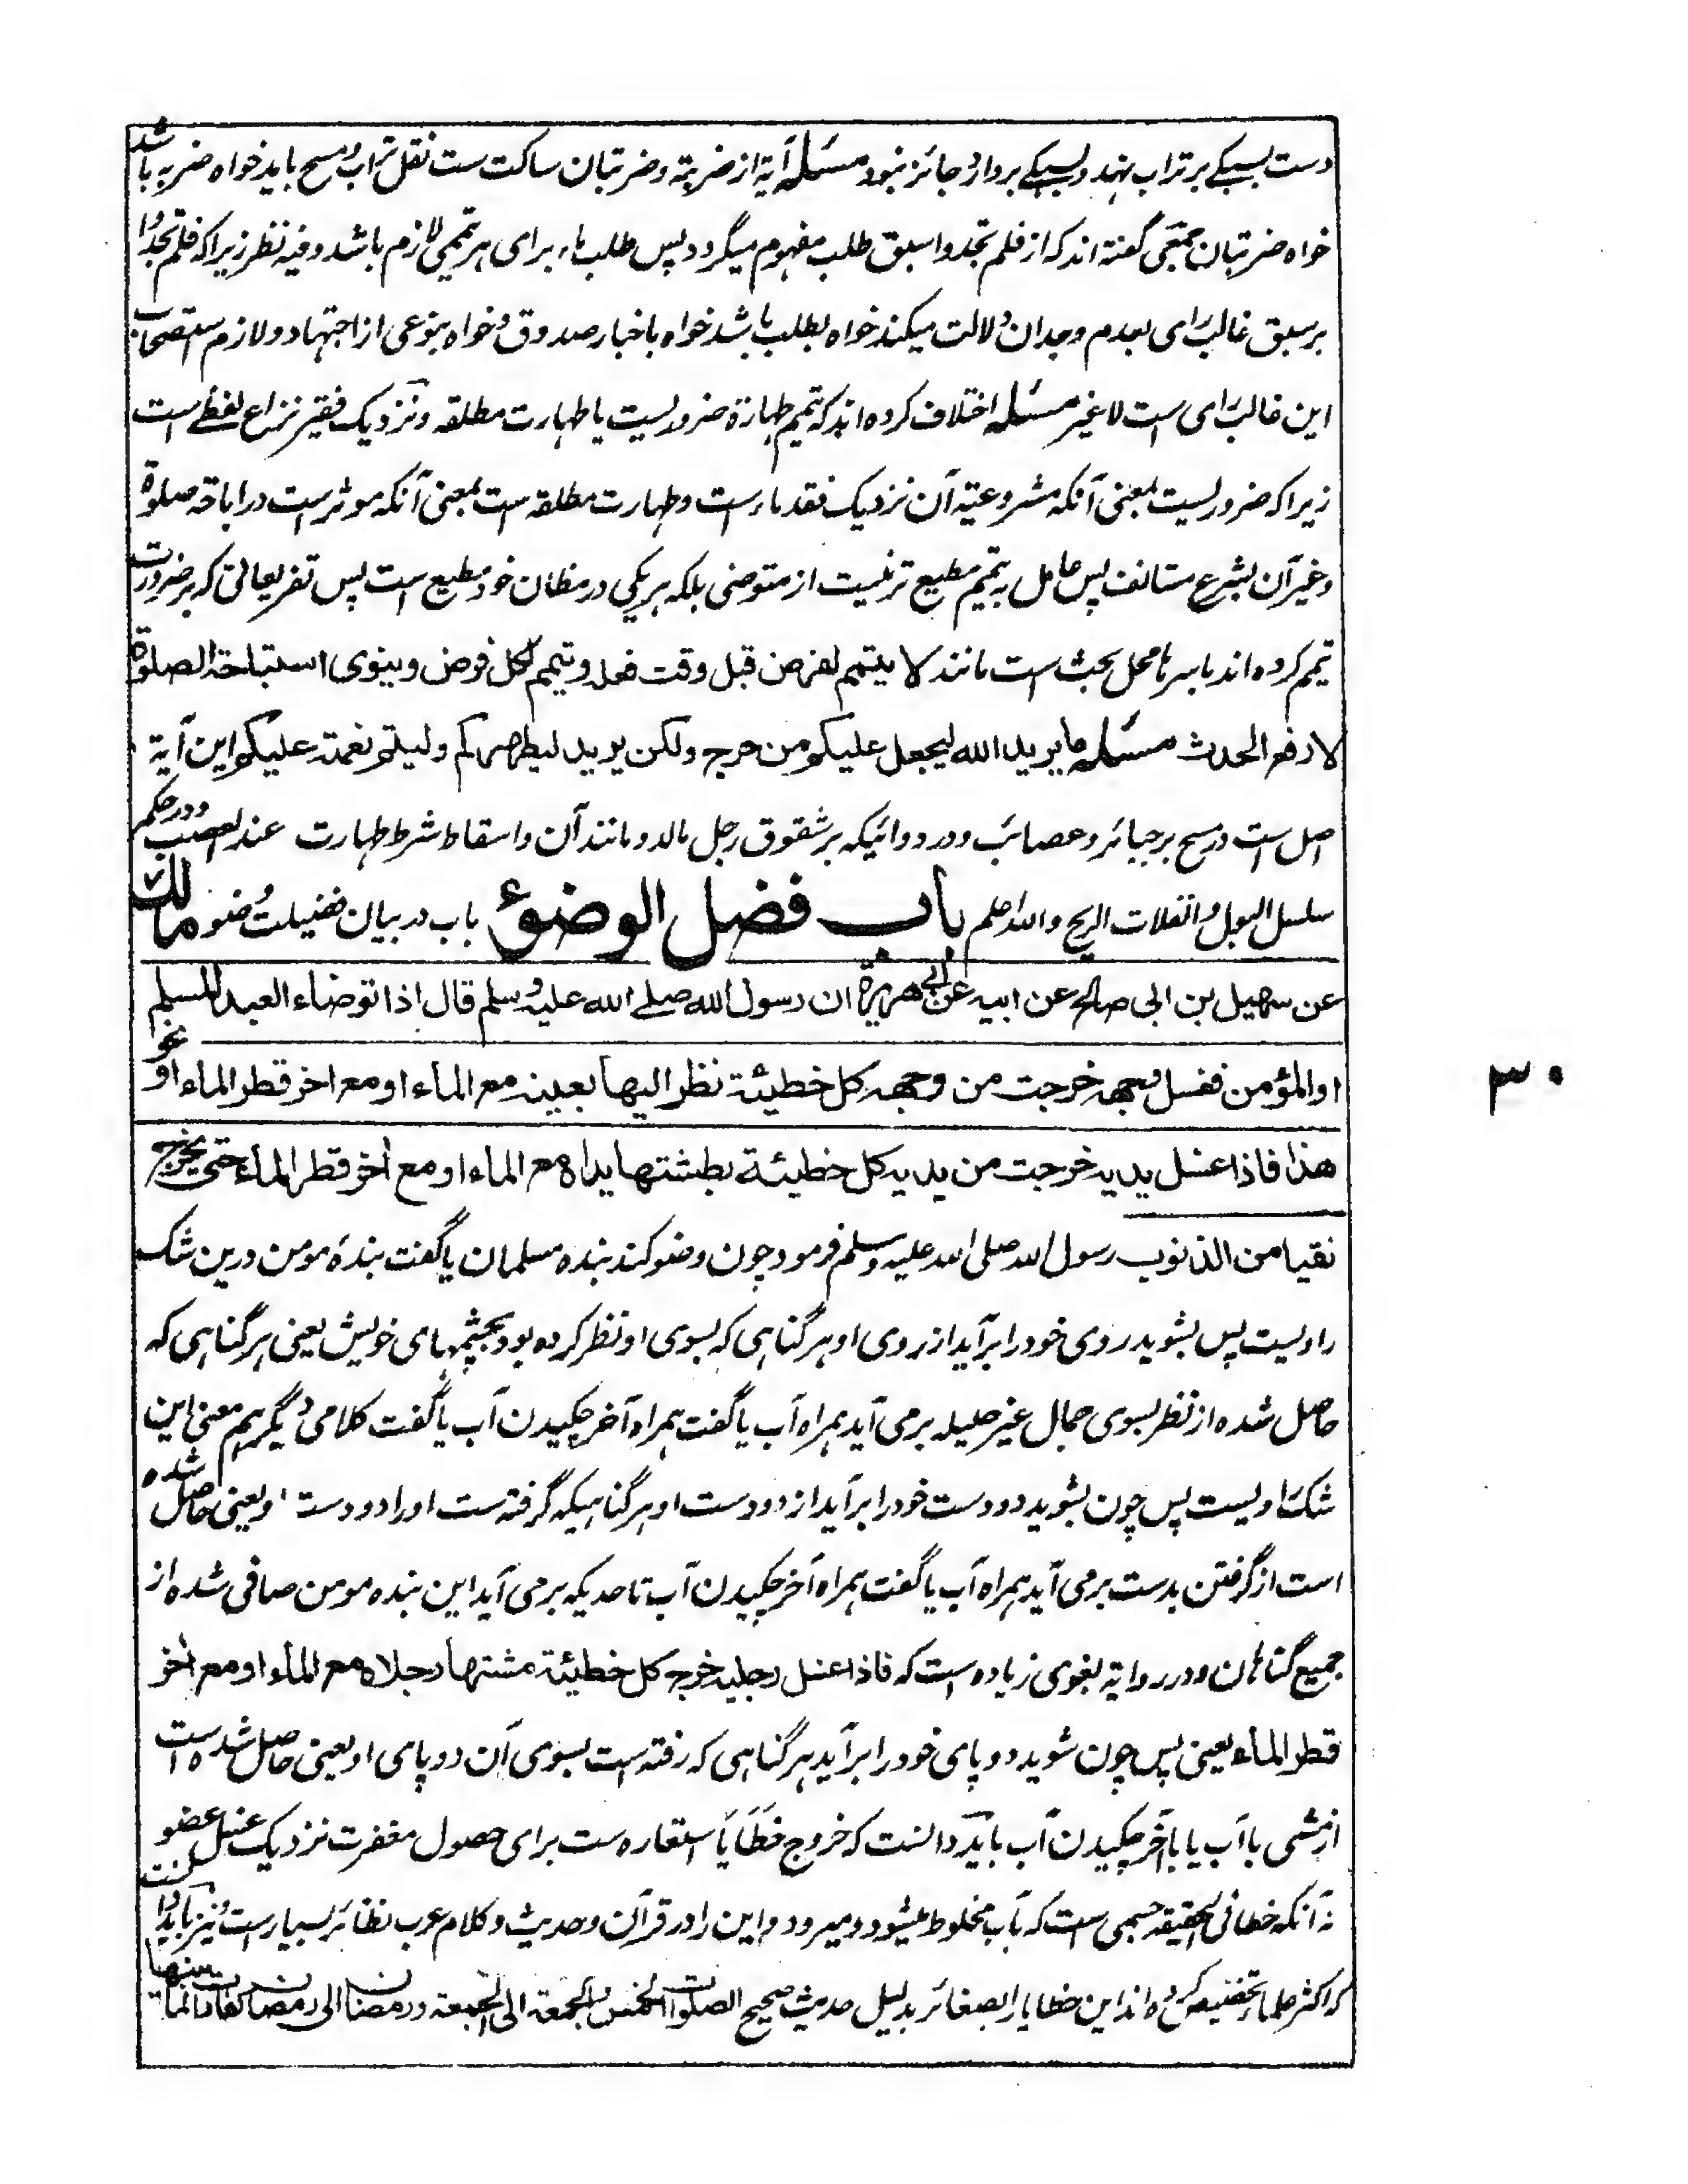 دست بسبکے بر تراب نہند و بسبکے بردارد جائز نبود مسئله آیة از ضربة و ضربتان ساکت ست نقل تراب و مسح باید خواه ضربه باشد
خواه ضربتان جمعی گفته اند که از فلم تجدوا سبق طلب مفهوم میگردد پس طلب ماء برای هر تیممی لازم باشد وفیه نظر زیرا که فلم تجدوا
بر سبق غالب رای بعدم وجدان دلالت میکند خواه بطلب باشد خواه باخبار صدوق و خواه بنوعی از اجتهاد و لازم استصحاب
این غالب رای ست لا غیر مسئله اختلاف کرده اند که تیمم طهارة ضروریست یا طهارت مطلقه و نزدیک فقیر نزاع لفظے است
زیرا که ضروریست بمعنی آنکه مشروعیة آن نزدیک فقد ماء ست و طهارت مطلقه ست بمعنی آنکه موثر است در اباحه صلوة
و غیر آن بشرع مستانف پس عامل به تیمم مطیع تر نیست از متوضی بلکه هر یکی در مظان خود مطیع است پس تفریعاتی که بر ضرورت
تیمم کرده اند باسرها محل بحث است مانند لا یتیمم لفرض قبل وقت فعله و تیمم لکل فرض وینوی استباحة الصلوة
لا رفع الحدث مسئله ما یرید الله لیجعل علیکم من حرج ولکن یرید لیطهرکم ولیتم نعمته علیکم این آیة
اصل است در مسح بر جبائر و عصائب و در دوائیکه بر شقوق رجل مالد و مانند آن و اسقاط شرط طهارت عند العصب و در حکم
سلسل البول و انفلات الریح والله اعلم باب فضل الوضوء باب در بیان فضیلت وضو مالك
عن سهیل بن ابی صالح عن ابیه عن ابی هریرة ان رسول الله صلے الله علیه وسلم قال اذا توضاء العبد المسلم
او المؤمن فغسل وجهه خرجت من وجهه کل خطیئة نظر الیها بعینه مع الماء او مع اخر قطر الماء او نحو
هذا فاذا غسل یدیه خرجت من یدیه کل خطیئة بطشتها یداه مع الماء او مع اخر قطر الماء حتی یخرج
نقیا من الذنوب رسول الله صلی الله علیه وسلم فرمود چون وضو کند بنده مسلمان یا گفت بنده مومن درین شک
راویست پس بشوید روی خود را برآید از روی او هر گناهی که بسوی او نظر کرده بود بچشمهای خویش یعنی هر گناهی که
حاصل شده از نظر بسوی جمال غیر حلیله برمی آید همراه آب یا گفت همراه آخر چکیدن آب یا گفت کلامی دیگر هم معنی این
شک راویست پس چون بشوید دو دست خود را برآید از دو دست او هر گناهیکه گرفته ست او را دو دست او یعنی حاصل شده
است از گرفتن بدست برمی آید همراه آب یا گفت همراه آخر چکیدن آب تا حدیکه برمی آید این بنده مومن صافی شده از
جمیع گناهان و در روایة بغوی زیاده ست که فاذا غسل رجلیه خرج کل خطیئة مشتها رجلاه مع الماء او مع اخر
قطر الماء یعنی پس چون شوید دو پای خود را برآید هر گناهی که رفته ست بسوی آن دو پای او یعنی حاصل شده است
از مشی با آب یا با آخر چکیدن آب باید دانست که خروج خطایا استعاره ست برای حصول مغفرت نزدیک غسل عضو
نه آنکه خطا فی الحقیقة جسمی ست که بآب مخلوط میشود و میرود و این را در قرآن و حدیث و کلام عرب نظائر بسیار ست و نیز باید دانست
که اکثر علماء تخصیص کرده اند این خطایا را بصغائر بدلیل حدیث صحیح الصلوات الخمس والجمعة الی الجمعة ورمضان الی رمضان کفارات لما بینها
۳۰